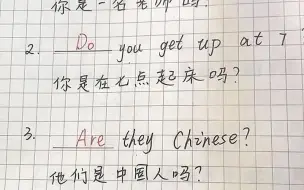 你是一名老师吗?
2. Do you get up at 7
你是在七点起床吗?
3. Are they Chinese?
他们是中国人吗?